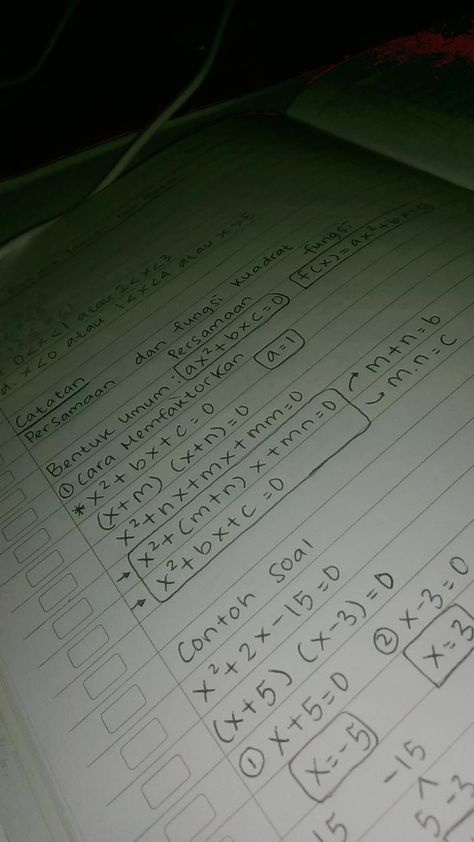 0<x<1 atau 2<x<3
d. x<0 atau 1<x<4 atau x>5
Catatan
Persamaan dan fungsi kuadrat
Persamaan fungsi
Bentuk umum: ax²+bx+c=0 f(x)=ax²+bx+c
① Cara Memfaktorkan a=1
* x²+bx+c=0
(x+m) (x+n)=0
x²+nx+mx+mm=0
x²+(m+n)x+mn=0 m+n=b
x²+bx+c=0 m.n=c
Contoh Soal
x²+2x-15=0
(x+5) (x-3)=0
① x+5=0 ② x-3=0
x=-5 x=3
15 -15
^
5 -3